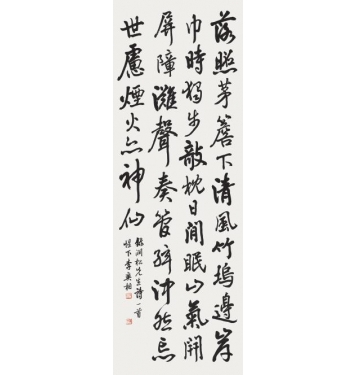 落照茅簷下清風竹塢邊岸
巾時獨步敲枕日閒眠山氣開
屏障灘聲奏管絃沖然忘
世慮煙火亦神仙
先生詩一首